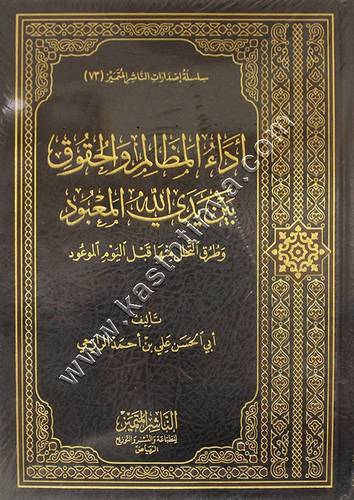 سلسلة إصدارات الناشر المتميز (٧٣)
أداء المظالم والحقوق
بين يدي الله المعبود
وطرق التحلل منها قبل اليوم الموعود
تأليف
أبي الحسن علي بن أحمد الرازحي
الناشر المتميز
للطباعة والنشر والتوزيع
الرياض
www.kastntinya.com